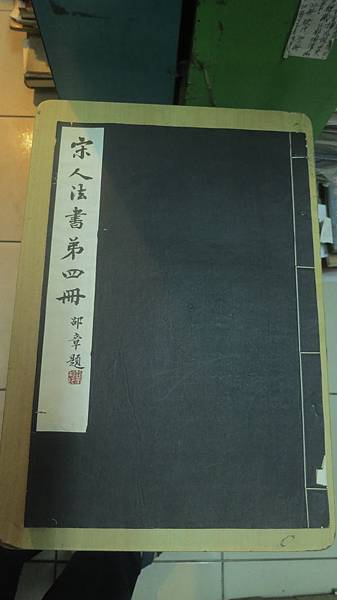 宋人法書第四冊
邵章題
C